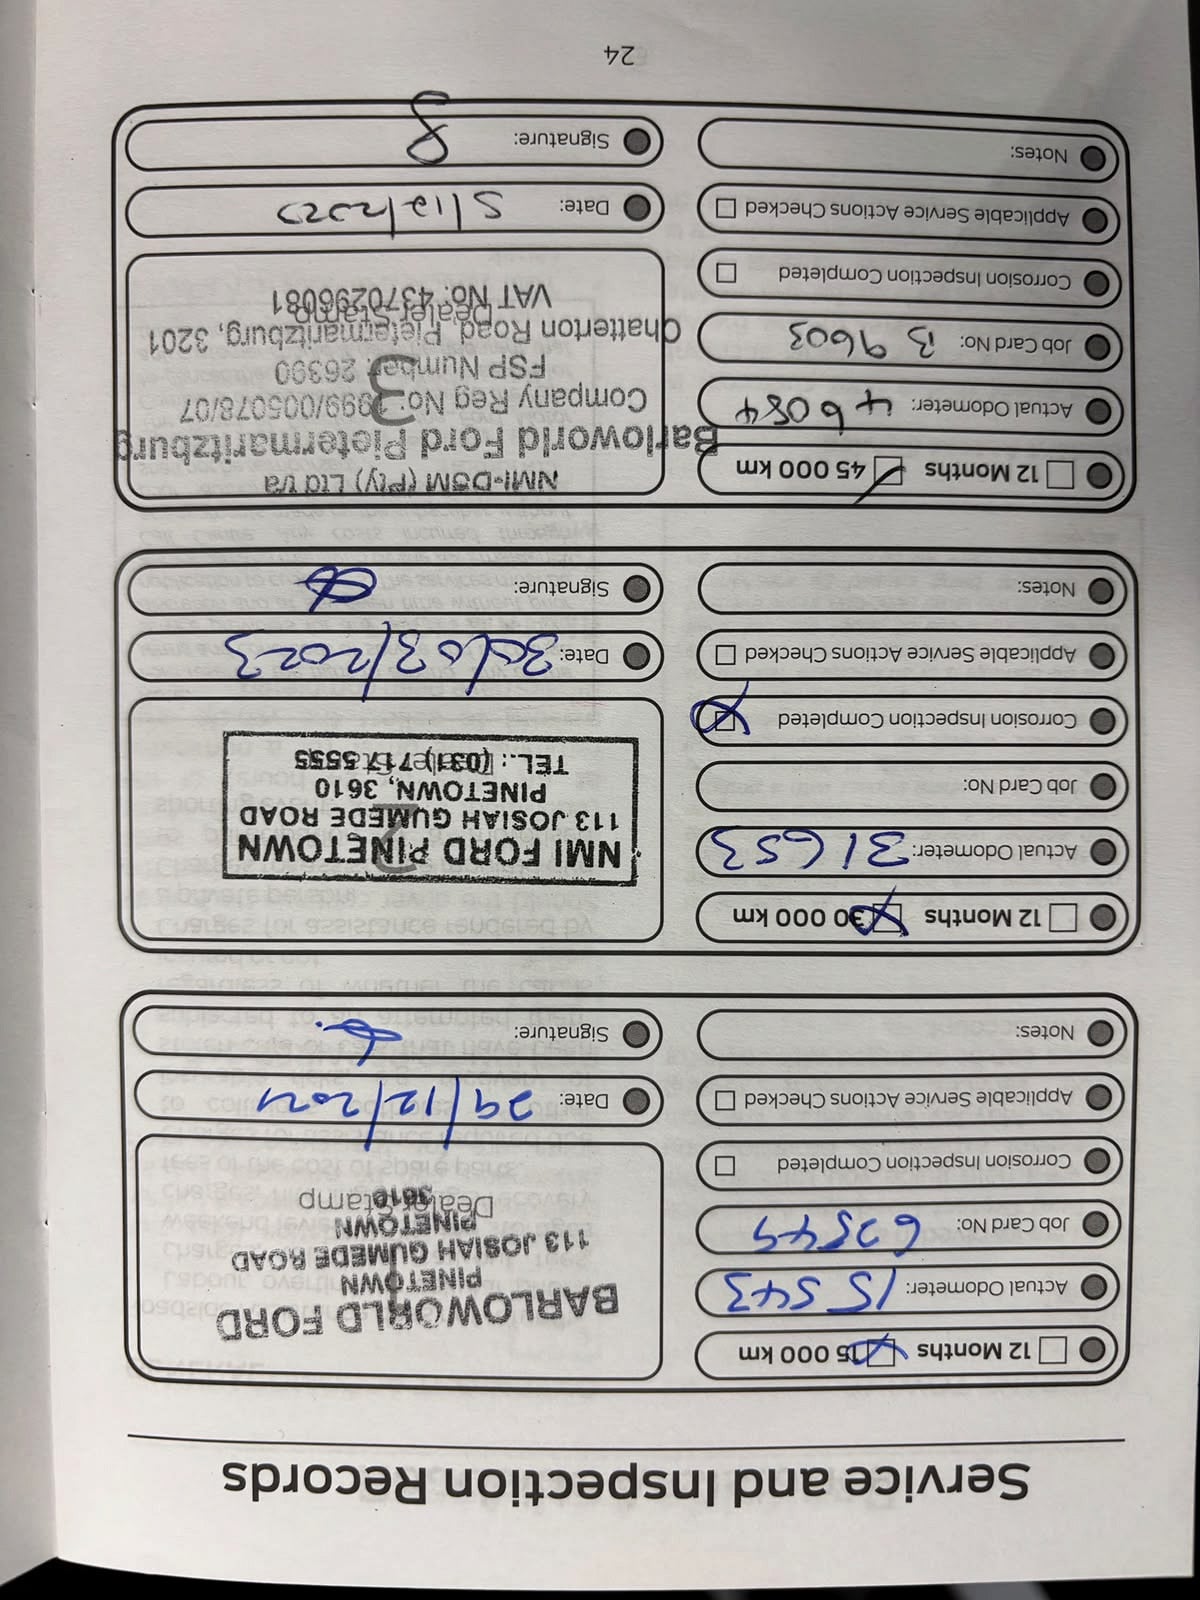 Service and Inspection Records
12 Months 15 000 km
Actual Odometer: 15 543
Job Card No:
Corrosion Inspection Completed
Applicable Service Actions Checked
Notes:
BARLOWORLD FORD
PINETOWN
113 JOSIAH GUMEDE ROAD
PINETOWN
3610
Dealer Stamp
Date: 29/12/2021
Signature:
12 Months 30 000 km
Actual Odometer: 31653
Job Card No:
Corrosion Inspection Completed
Applicable Service Actions Checked
Notes:
2
NMI FORD PINETOWN
113 JOSIAH GUMEDE ROAD
PINETOWN, 3610
TEL.: (031) 717 5555
Dealer Stamp
Date: 30/03/2023
Signature:
12 Months 45 000 km
Actual Odometer: 46084
Job Card No: B 9603
Corrosion Inspection Completed
Applicable Service Actions Checked
Notes:
3
NMI-DSM (Pty) Ltd t/a
Barloworld Ford Pietermaritzburg
Company Reg No: 1999/005078/07
FSP Number: 26390
Chatterton Road, Pietermaritzburg, 3201
Dealer Stamp
VAT No: 4370296081
Date: 5/12/2023
Signature:
24